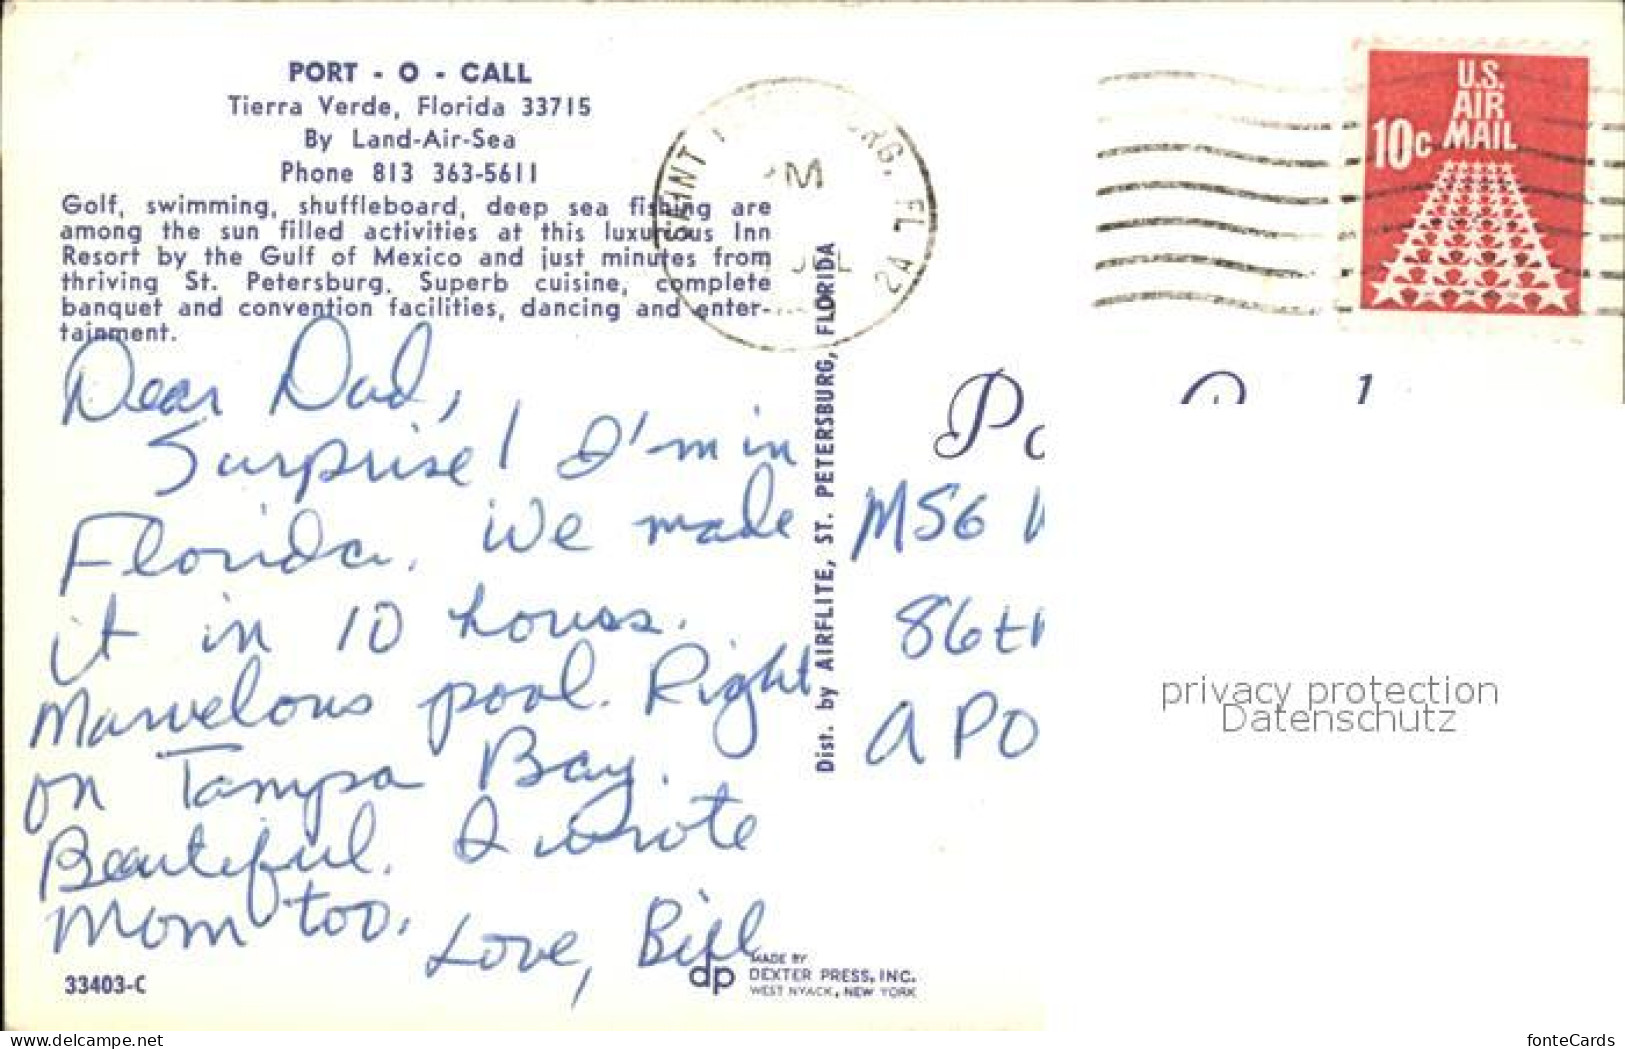 PORT - O - CALL
Tierra Verde, Florida 33715
By Land-Air-Sea
Phone 813 363-5611
Golf, swimming, shuffleboard, deep sea fishing are
among the sun filled activities at this luxurious Inn
Resort by the Gulf of Mexico and just minutes from
thriving St. Petersburg. Superb cuisine, complete
banquet and convention facilities, dancing and enter-
tainment.
Dear Dad,
Surprise! I'm in
Florida. We made
it in 10 hours.
Marvelous pool. Right
on Tampa Bay.
Beautiful. I wrote
Mom too.
Love, Bill
33403-C
dp
MADE BY
DEXTER PRESS, INC.
WEST NYACK, NEW YORK
Dist. by AIRFLITE, ST. PETERSBURG, FLORIDA
JUL
FL
U.S.
AIR
MAIL
10c
MSG
86th
APO
privacy protection
Datenschutz
www.delcampe.net
fonteCards